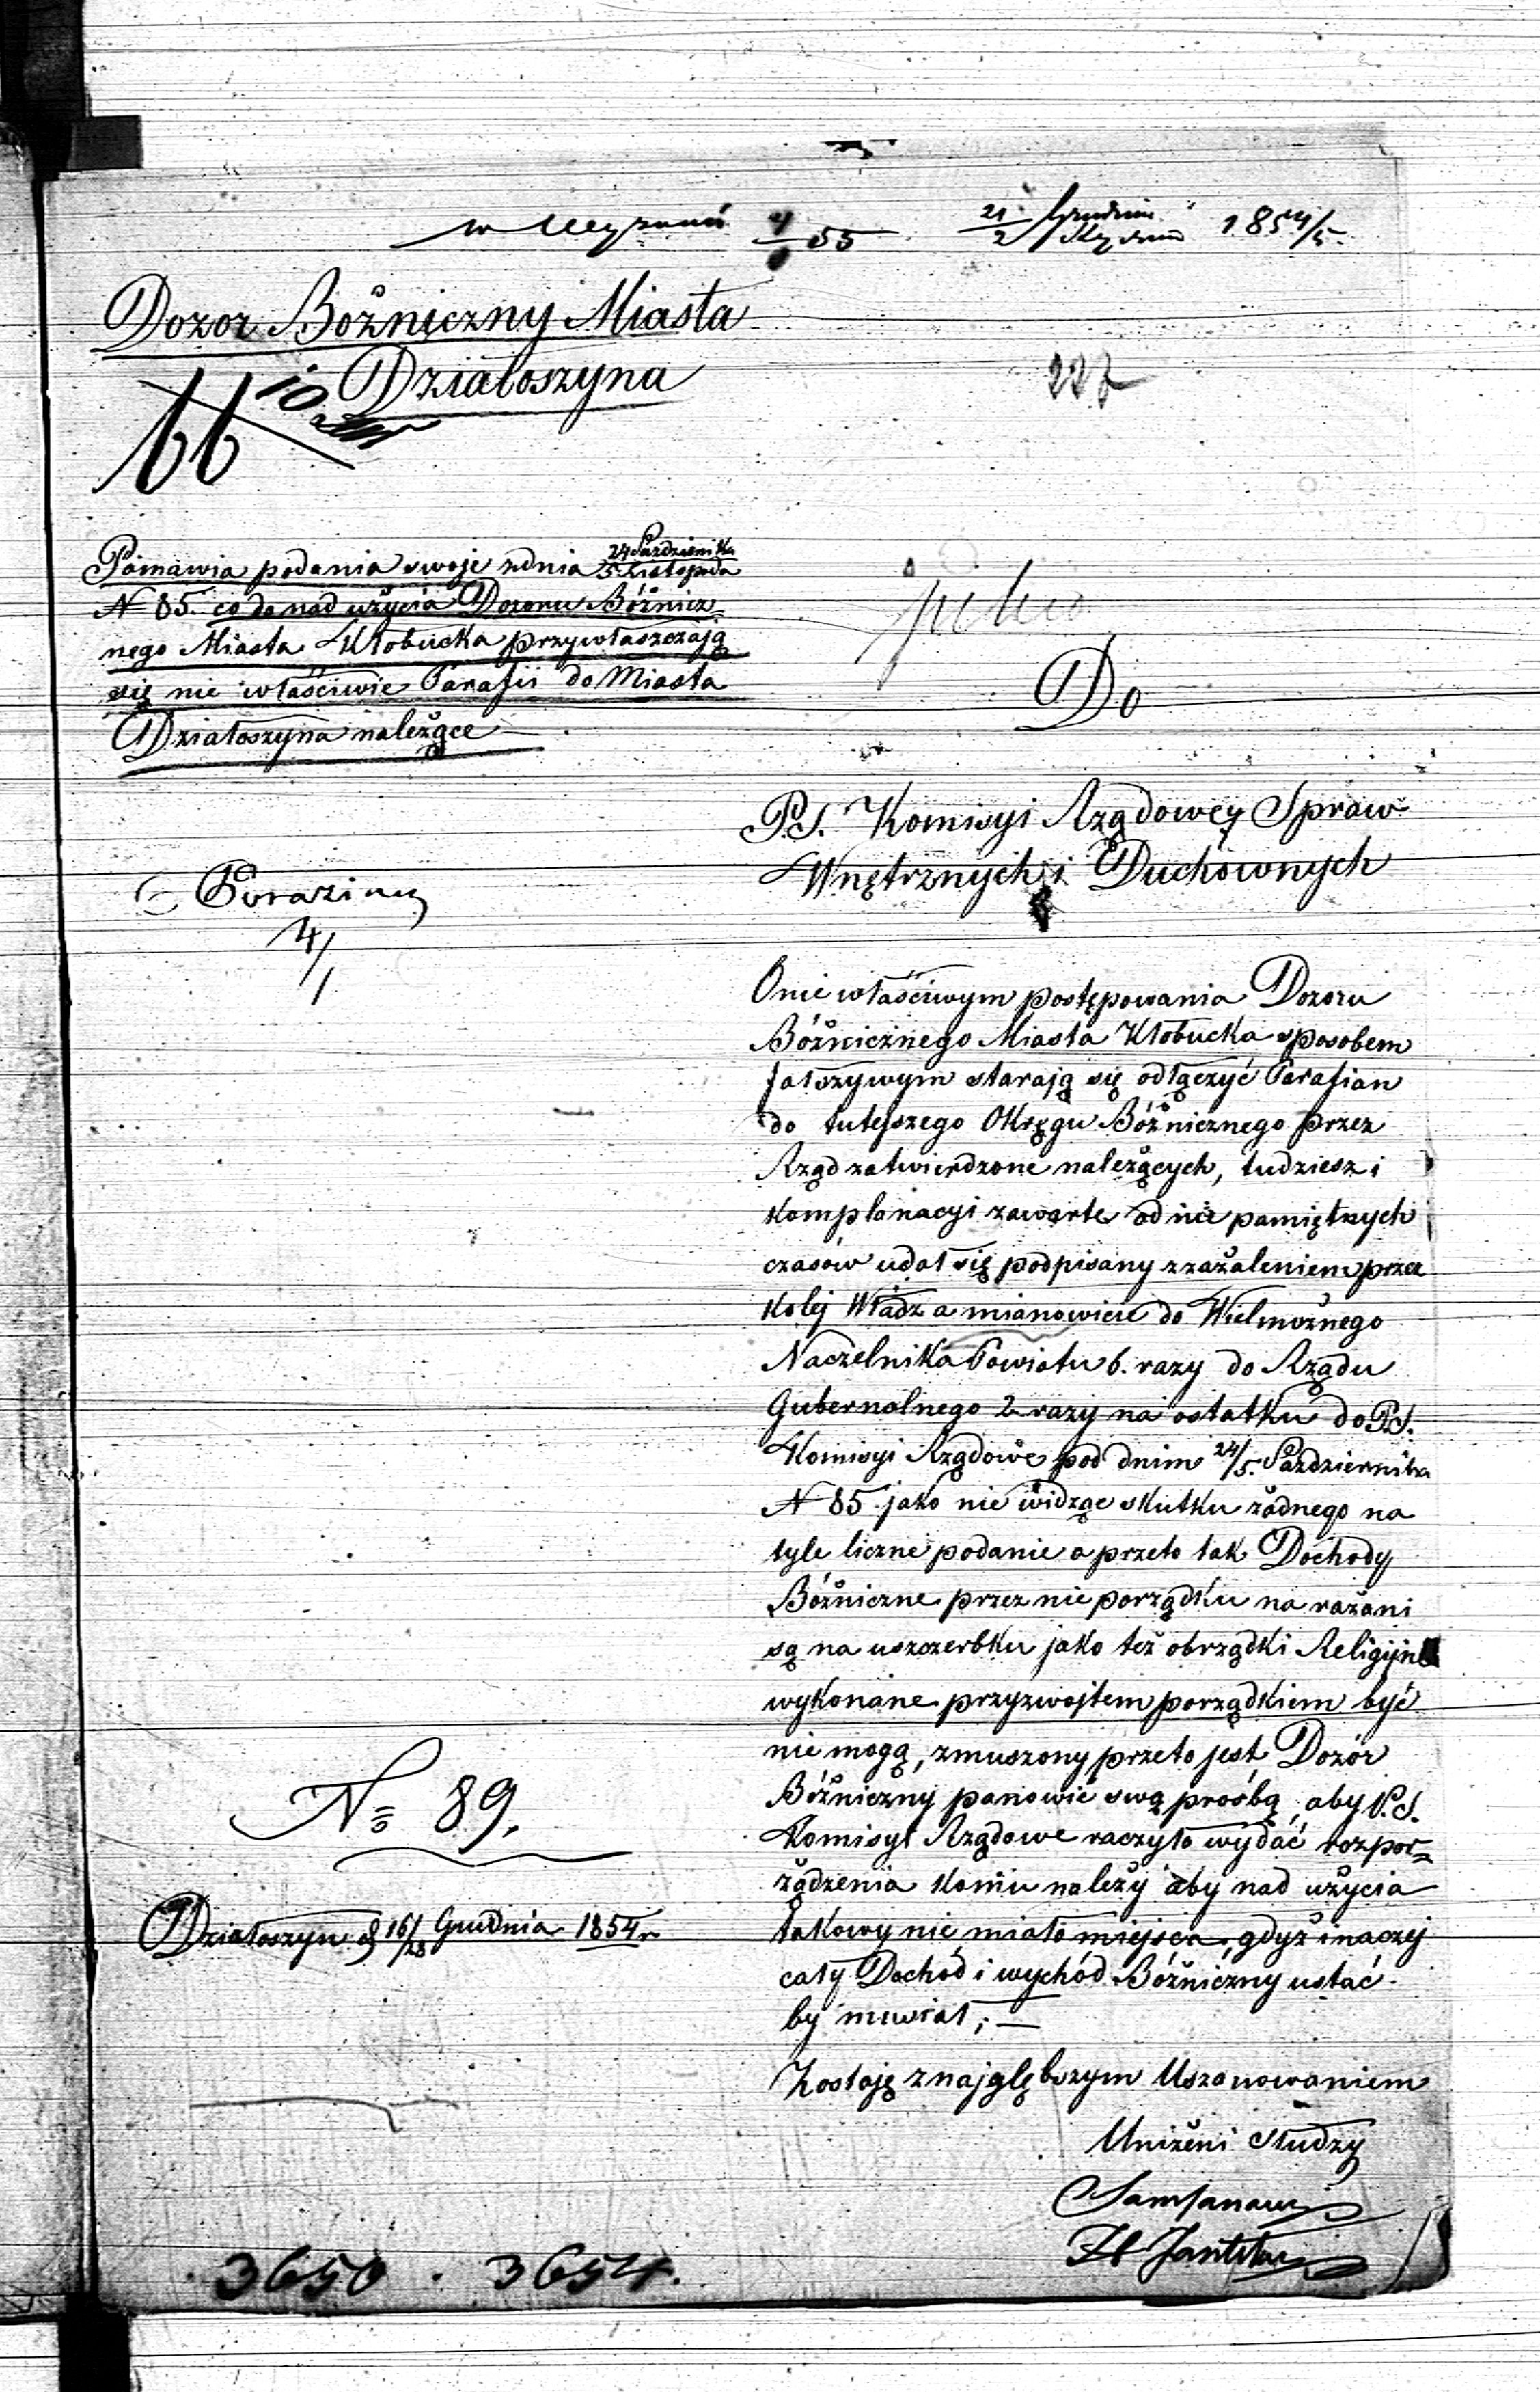 55 21/2 Grudnia Stycznia 1854/5
Dozor Bóżniczny Miasta
Działoszyna
227
Ponawia podania swoje zdnia 24 Października
5 Listopada
N 85. co do nad użycia Dozoru Bóżnicz=
nego Miasta Kłobucka przywłaszczają
się nie właściwie Parafii do Miasta
Działoszyna należące
Do
P.S. Komisyi Rządowey Spraw
Wnętrznych i Duchownych
4/1
O nie właściwym postępowania Dozoru
Bóżnicznego Miasta Kłobucka sposobem
fałszywym starają się odłączyć Parafian
do tutejszego Okręgu Bóżnicznego przez
Rząd zatwierdzone należących, tudziesz i
komplanacyi zawarte od nie pamiętnych
czasów udał się podpisany z zażaleniem przez
kolej Władz a mianowicie do Wielmożnego
Naczelnika Powiatu 6. razy do Rządu
Gubernalnego 2 razy na ostatku do P.S.
Komisyi Rządowe pod dnim 24/5. Października
N 85 jako nie widząc skutku żadnego na
tyle liczne podanie a przeto tak Dochody
Bóżniczne przez nie porządku na rażani
są na uszczerbku jako też obrządki Religijne
wykonane przyzwojtem porządkiem być
nie mogą, zmuszony przeto jest Dozór
Bóżniczny panowić swą prośbą, aby P.S.
Komisyi Rządowe raczyło wydać rozpor=
ządzenia komu należy aby nad użycia
takowy nie miało miejsca, gdyż inaczej
cały Dochód i wychód Bóżniczny ustać
by musiał; —
Zostaję z najgłębszym Uszanowaniem
Uniżeni Słudzy
No 89.
Działoszyn d 16/28 Grudnia 1854 r
3650 . 3654.